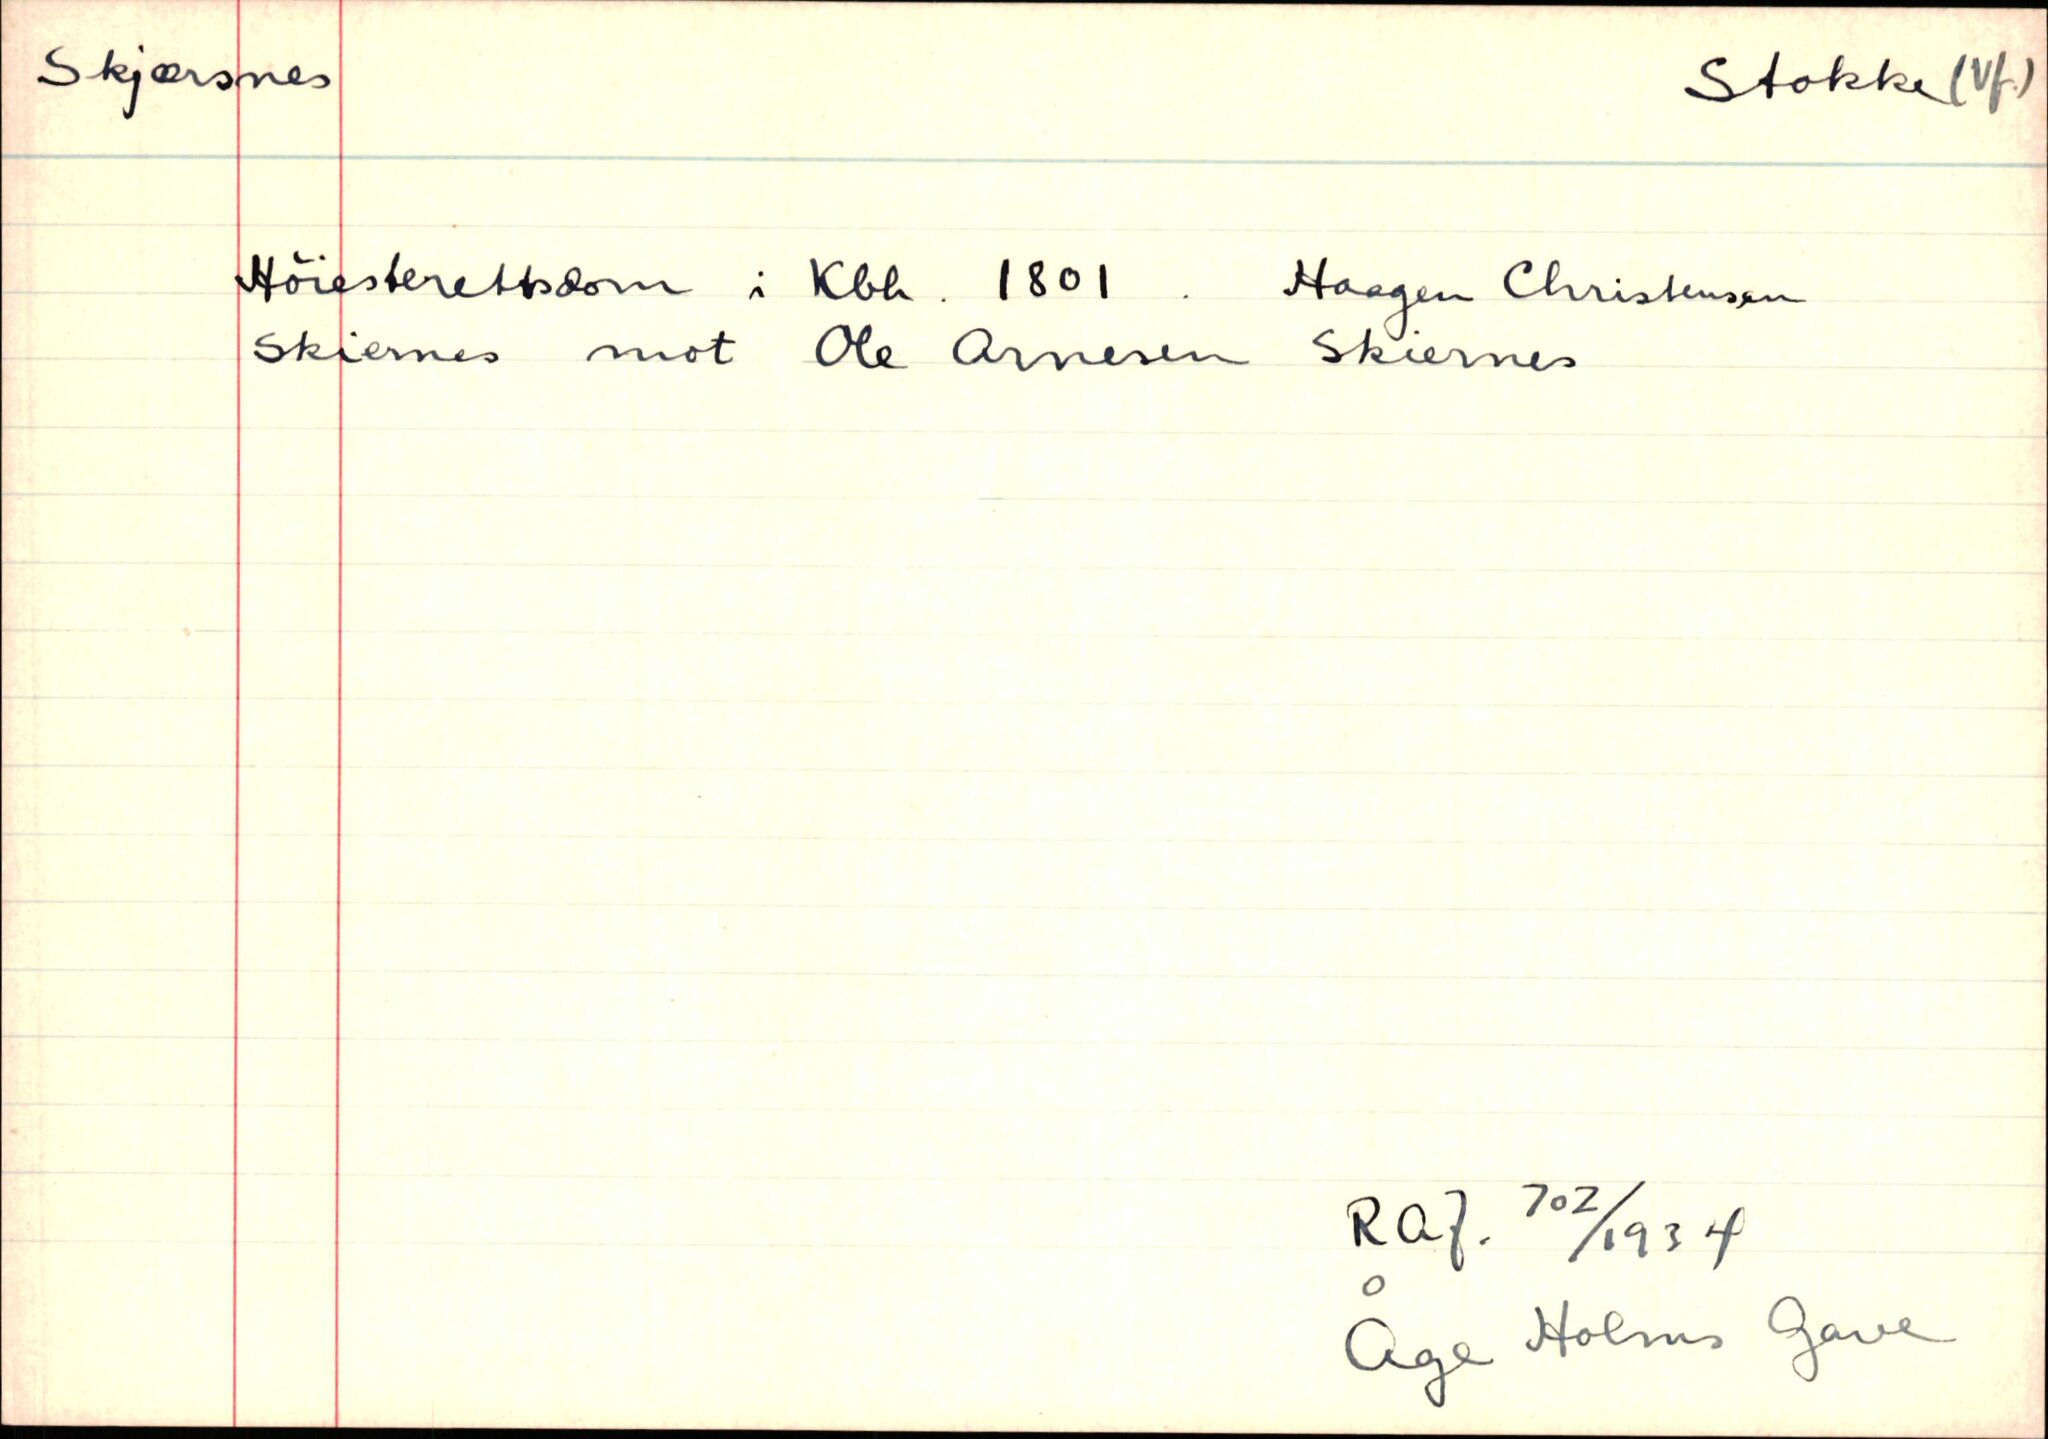 Skjærsnes
Stokke (Vf.)
Höiesterettsdom i Kbh. 1801. Haagen Christensen
Skiernes mot Ole Arnesen Skiernes
RAJ. 702/1934
Åge Holms Gave